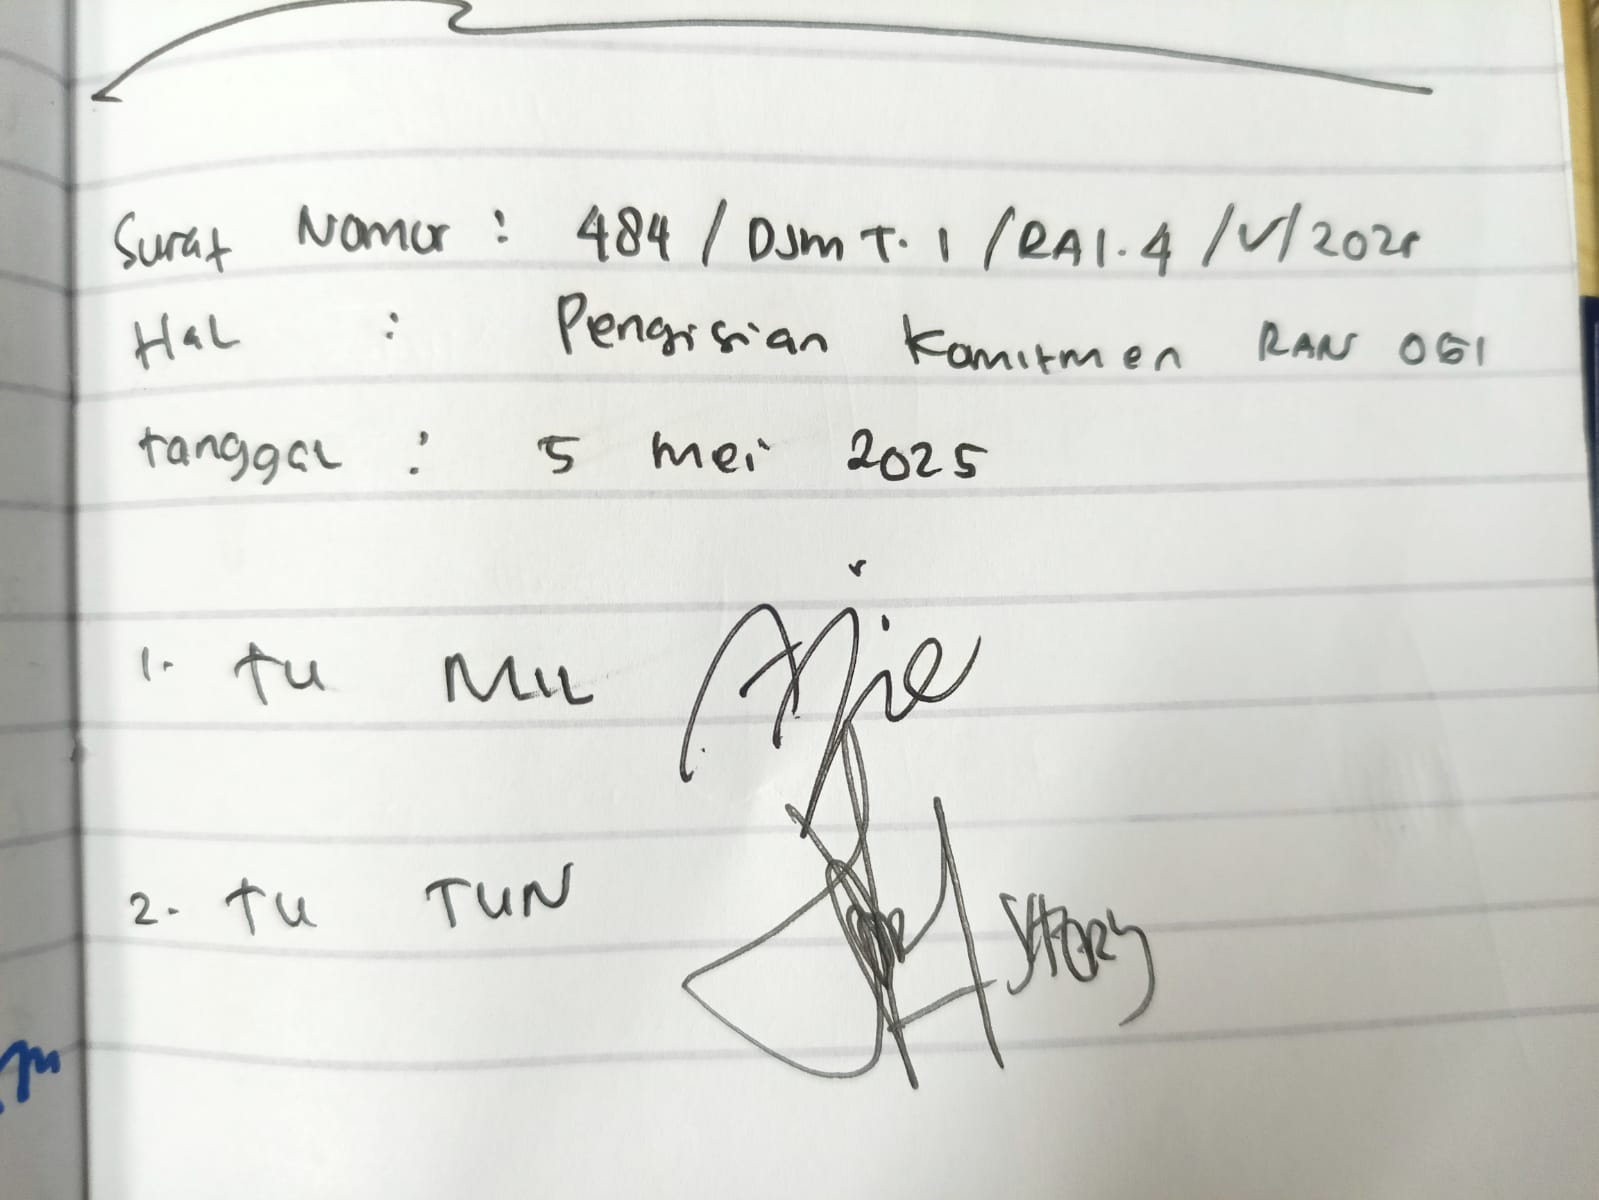 Surat Nomor : 484 / DJMT.1 / RA1.4 / V / 2025
Hal : Pengisian Komitmen RAN OGI
tanggal : 5 mei 2025
1. TU MIL
2. TU TUN